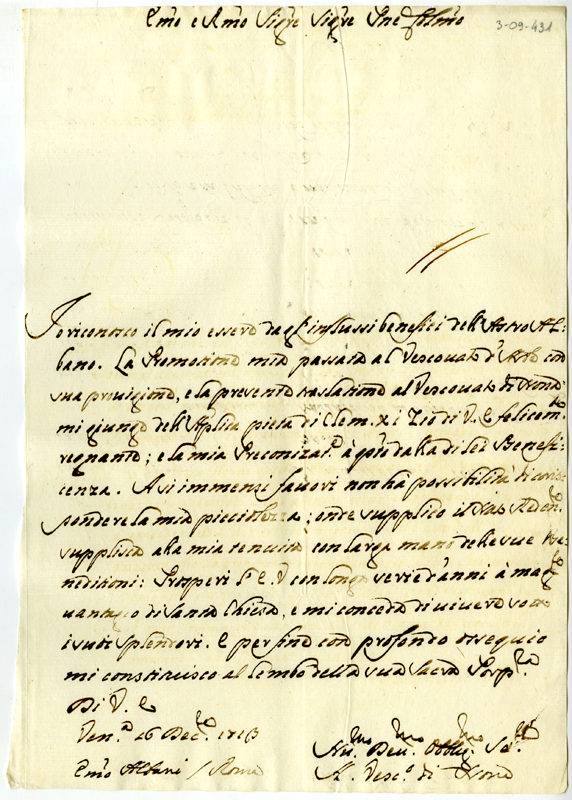 Em̃o e Rm̃o Sig.re Sig.re Pne Colm̃o
3-09-431
Io riconosco il mio essere dagl'influssi benefici dell'Astro Al-
bano. La Promotione mia passata al Vescovato d' con
sua provigione, e la presente traslatione al Vescovato di Nona
mi giunge dell'Aplica pietà di Clem. XI Zio di V. E. felicem.te
regnante; e la mia Preconizat.e à da lei Benefi-
cenza. A sì immensi favori non hà possibilità di coris-
pondere la mia picciolezza; onde supplico il
supplisca alla mia tenuità con larga mano delle sue Be-
neditioni: Prosperi S. E. V. con longa serie d'anni à mag.r
vantagio di Santa Chiesa, e mi conceda di vivere sotto
i suoi splendori. E per fine con profondo ossequio
mi constituisco al lembo della sua Sacra Porp.ra
Di V. E.
Ven.a 16 Dec.re 1713
Hu.mo Dev.mo Obblig.mo Se.re
Em̃o Albani / Roma
N. Vesc.o di Nona